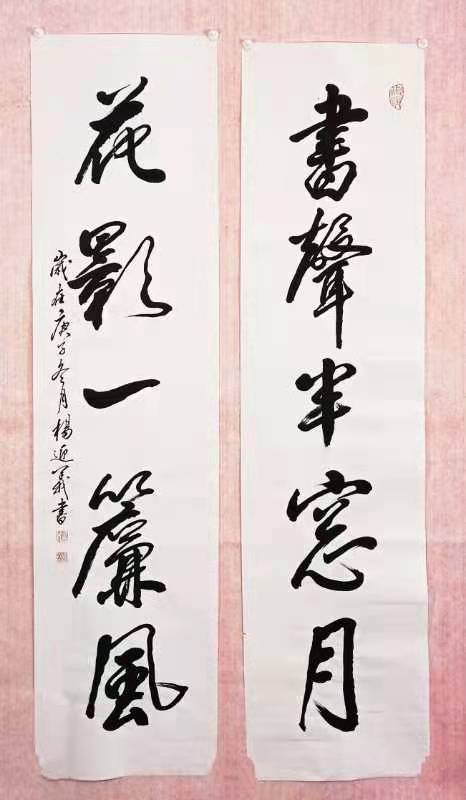 書聲半窓月
花影一簾風
歲在庚子冬月楊延義書